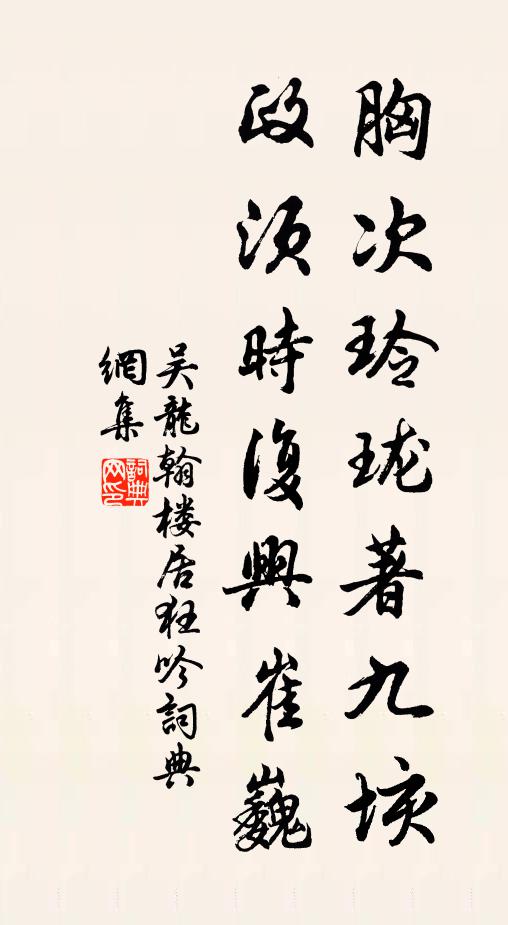 胸次玲珑著九垓
政须時復興崔巍
吴龍翰楼居狂吟詞典
網集
詞典網印